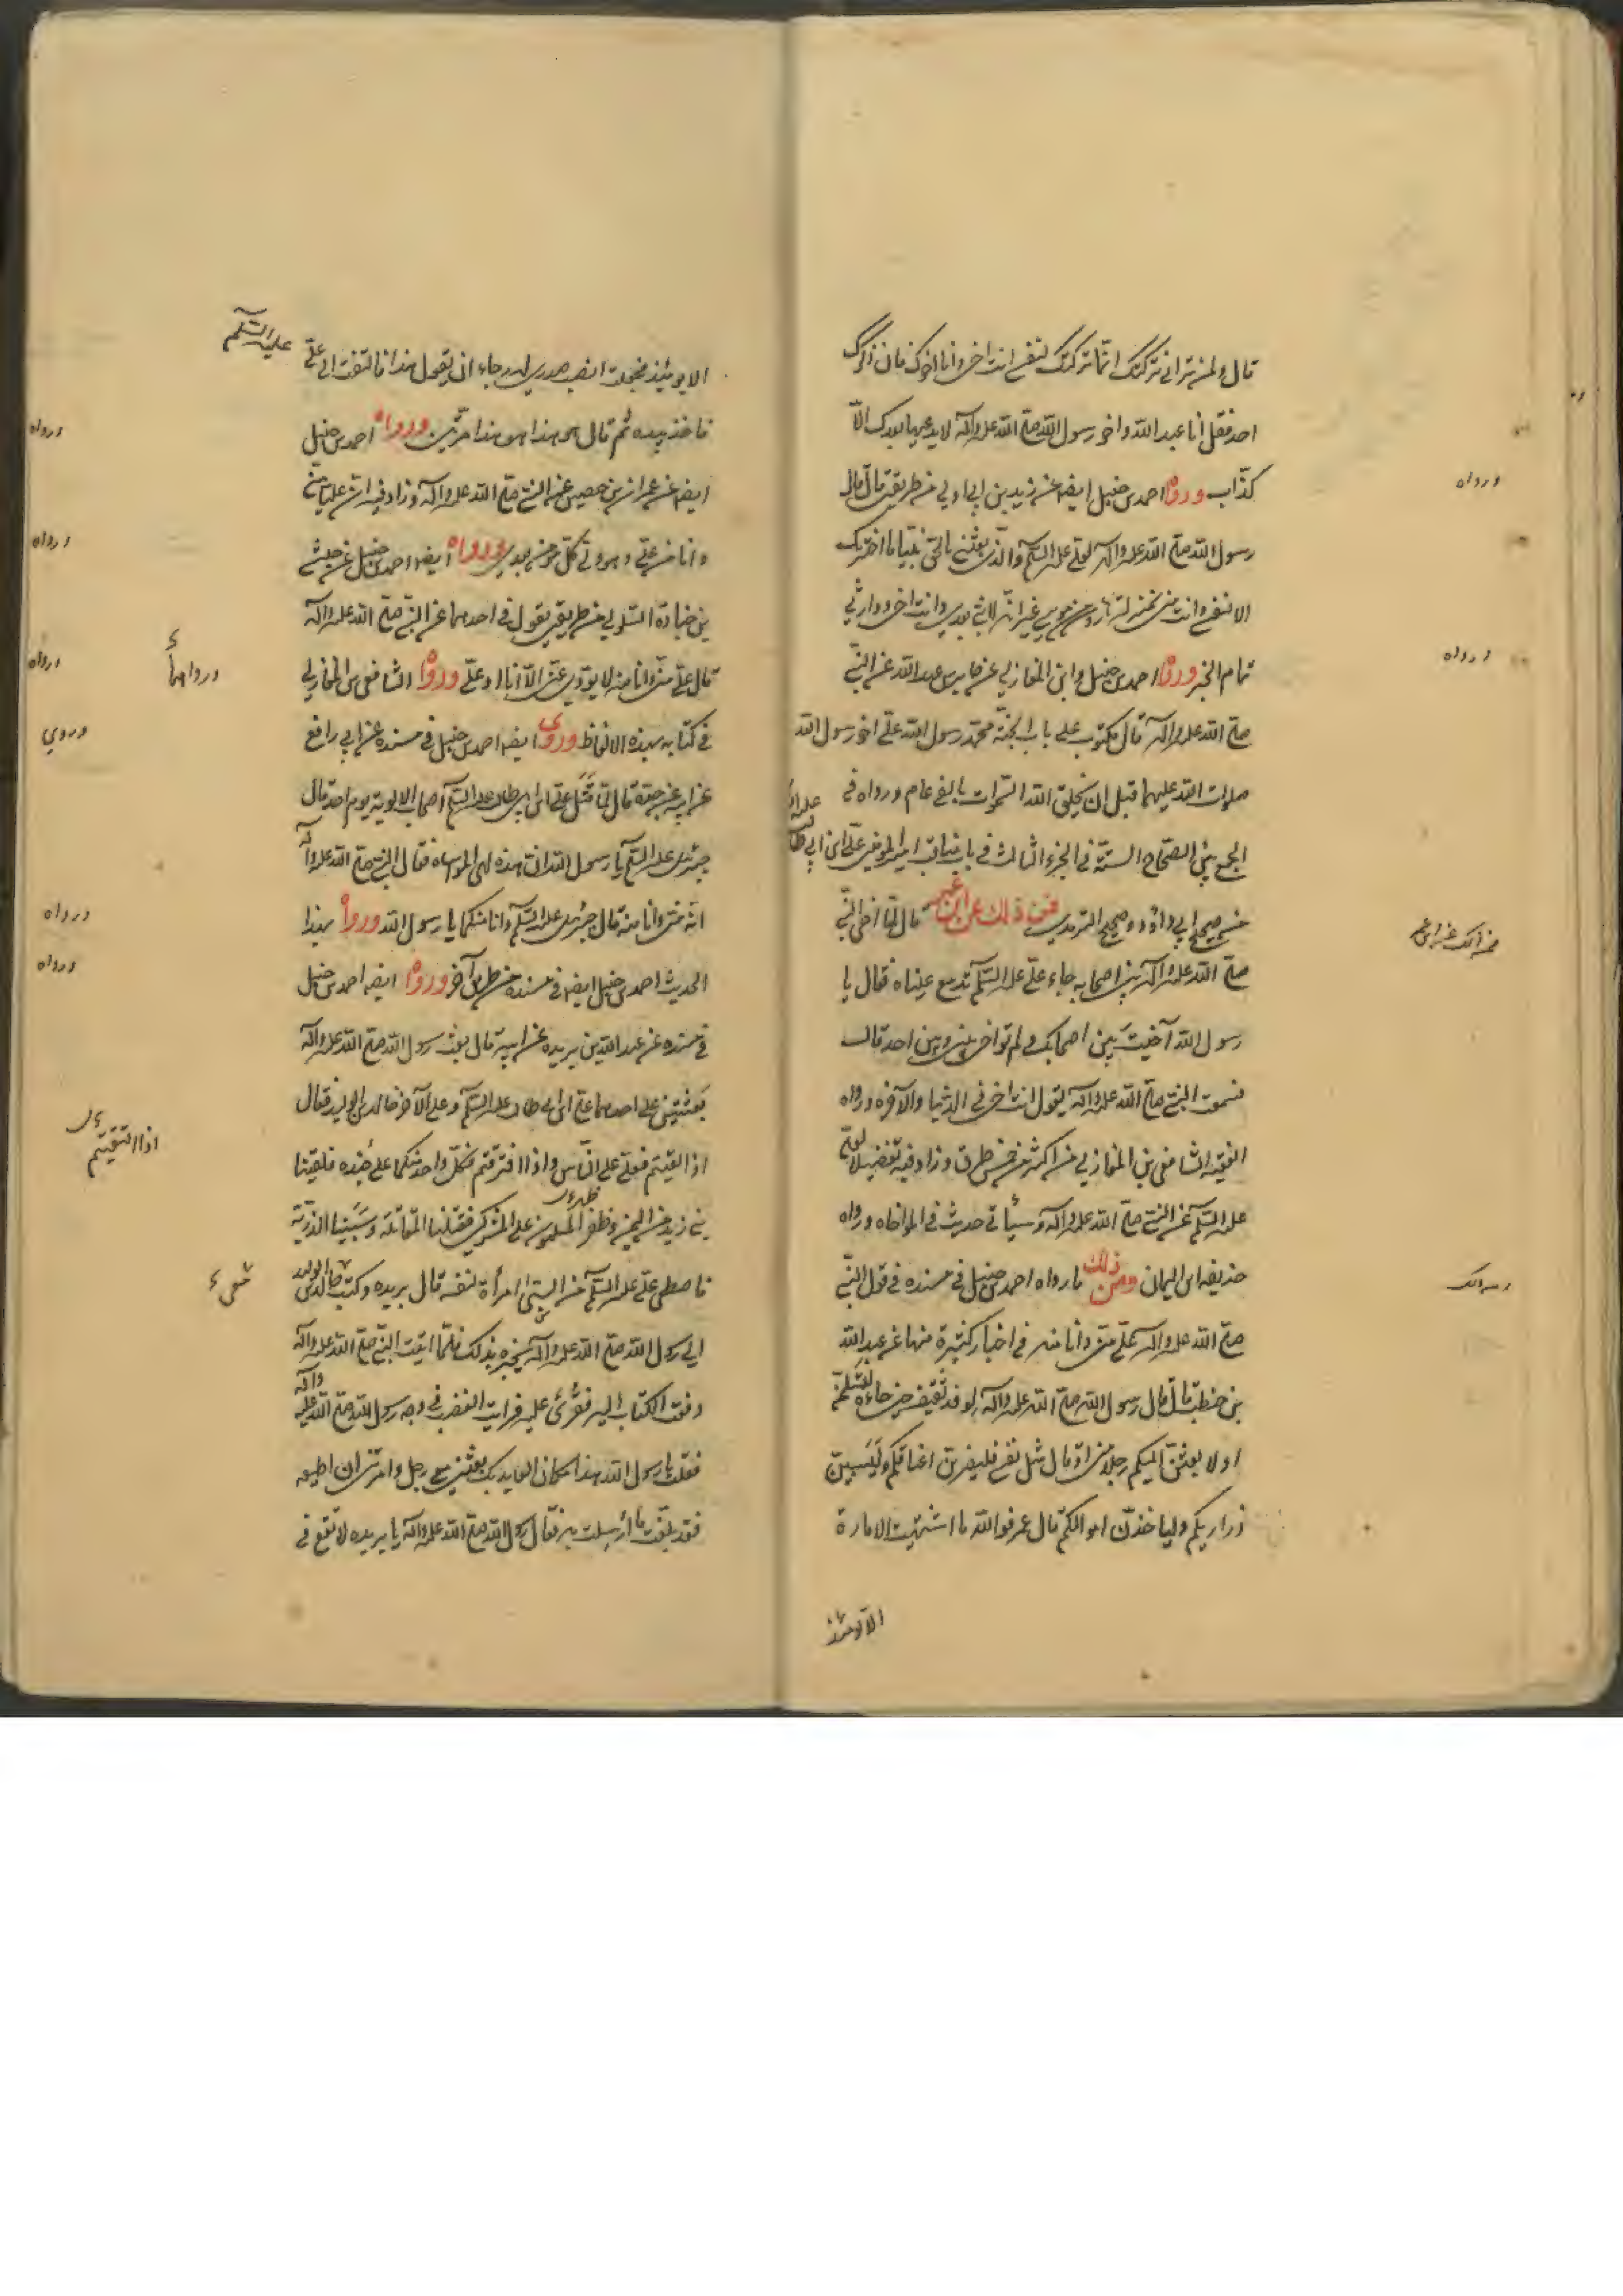 قال ولمن تراني تركتك انما تركتك لنفسي انت اخي وانا اخوك فان ذاكرك
احد فقل أنا عبد الله واخو رسول الله صلى الله عليه وآله لا يدعيها بعدك الا
كذاب ورواه احمد بن حنبل ايضا عن زيد بن ابي اوفى من طريقين قال قال
رسول الله صلى الله عليه وآله لعلي عليه السلام والذي بعثني بالحق نبيا ما اخترتك
الا لنفسي وانت مني بمنزلة هارون من موسى غير انه لا نبي بعدي وانت اخي ووارثي
تمام الخبر ورواه احمد بن حنبل وابن المغازلي عن جابر بن عبد الله عن النبي
صلى الله عليه وآله قال مكتوب على باب الجنة محمد رسول الله علي اخو رسول الله
صلوات الله عليهما قبل ان يخلق الله السموات بالفي عام ورواه في
الجمع بين الصحاح الستة في الجزء الثالث في باب مناقب امير المؤمنين علي ابن ابي طالب
من صحيح ابي داود وصحيح الترمذي فمن ذلك عن ابن عمر قال لما اخى النبي
صلى الله عليه وآله بين اصحابه جاء علي عليه السلام تدمع عيناه فقال يا
رسول الله آخيت بين اصحابك ولم تواخ بيني وبين احد قال
فسمعت النبي صلى الله عليه وآله يقول انت اخي في الدنيا والآخرة ورواه
الفقيه الشافعي بن المغازلي من اكثر من خمس طرق وزاد فيه تفضيلا لعلي
عليه السلام عن النبي صلى الله عليه وآله وسيأتي حديث في المواخاه ورواه
حذيفه ابن اليمان ومن ذلك ما رواه احمد بن حنبل في مسنده في قول النبي
صلى الله عليه وآله علي مني وأنا منه في اخبار كثيرة منها عن عبد الله
بن حنطب قال قال رسول الله صلى الله عليه وآله لوفد ثقيف حين جاءوه لتسلمن
او لابعثن اليكم رجلا مني او قال مثل نفسي فليضربن اعناقكم وليسبين
ذراريكم ولياخذن اموالكم قال عمر فوالله ما اشتهيت الامارة
الا يومئذ
ورواه
ورواه
الا يومئذ فجعلت انصب صدري له رجاء ان يقول هذا فالتفت الى علي
عليه السلم
فاخذ بيده ثم قال هو هذا هو هذا مرتين ورواه احمد بن حنبل
ايضا عن عمران بن حصين عن النبي صلى الله عليه وآله وزاد فيه ان عليا مني
وانا من علي وهو ولي كل مؤمن بعدي ورواه ايضا احمد بن حنبل عن حبشي
بن جنادة السلولي من طريقين يقول في احدهما عن النبي صلى الله عليه وآله
قال علي مني وانا منه لا يؤدي عني الا أنا او علي ورواه الشافعي بن المغازلي
في كتابه بهذه الالفاظ وروى ايضا احمد بن حنبل في مسنده عن ابي رافع
عن ابيه عن جده قال لما قتل علي ابن ابي طالب عليه السلام اصحاب الالوية يوم احد قال
جبرئيل عليه السلام يا رسول الله ان هذه لهي المواساه فقال النبي صلى الله عليه وآله
انه مني وانا منه قال جبرئيل عليه السلام وانا منكما يا رسول الله ورواه بهذا
الحديث احمد بن حنبل ايضا في مسنده من طريق آخر ورواه ايضا احمد بن حنبل
في مسنده عن عبد الله بن بريده عن ابيه قال بعث رسول الله صلى الله عليه وآله
بعثتين على احدهما علي ابن ابي طالب عليه السلم وعلى الآخر خالد بن الوليد فقال
اذا لقيتم فعلي على الناس واذا افترقتم فكل واحد منكما على جنده فلقينا
بني زيد من اليمن وظفر المسلمون على المشركين فقتلنا المقاتلة وسبينا الذرية
فاصطفى علي عليه السلم من السبي امرأة لنفسه قال بريده وكتب خالد بن الوليد
الى رسول الله صلى الله عليه وآله يخبره بذلك فلما اتيت النبي صلى الله عليه وآله
دفعت الكتاب اليه فقرئ عليه فرايت الغضب في وجه رسول الله صلى الله عليه وآله
فقلت يا رسول الله هذا مكان العايذ بك بعثتني مع رجل وامرتني ان اطيعه
فقد بلغت ما أرسلت به فقال رسول الله صلى الله عليه وآله يا بريده لا تقع في
ورواه
ورواه
ورواه
ورواهما
وروي
ورواه
ورواه
اذا التقيتم